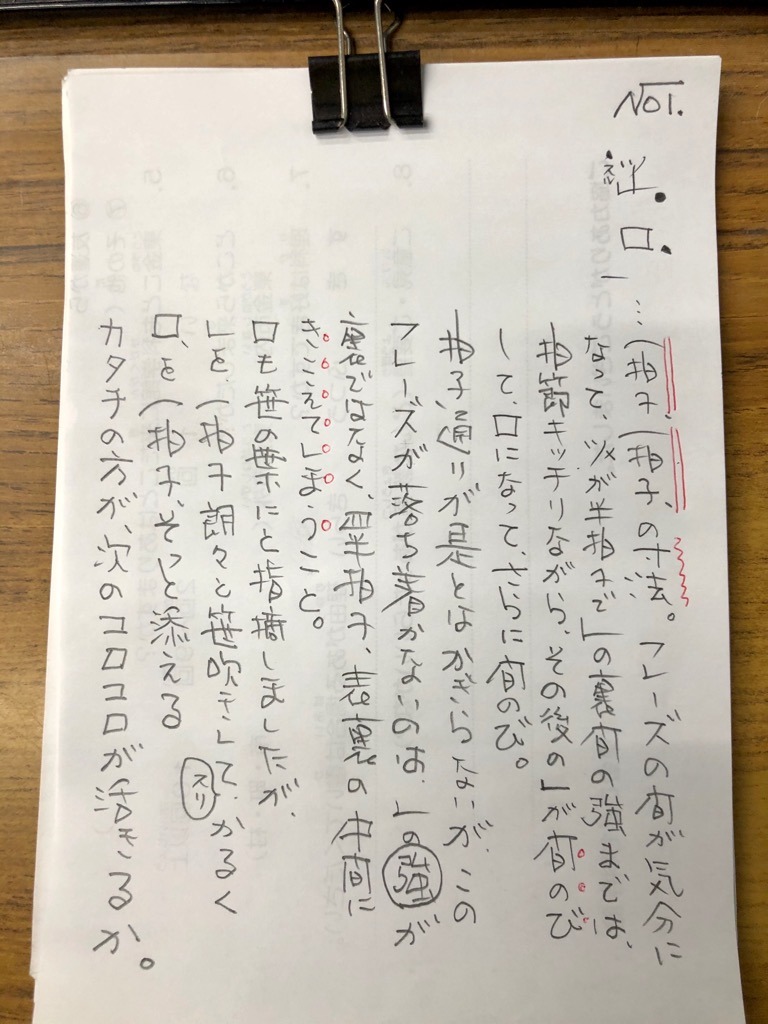 NO1.
謎。口、
一…(拍子、(拍子、の寸法。フレーズの间が気分に
なって、ツメが半拍子で」の裏间の強までは、
拍節キッチリながら、その後の」が间のび
して、口になって、さらに间のび。
拍子、通りが是とはかぎらないが、この
フレーズが落ち着かないのは、」の強が
裏ではなく、四半拍子、表裏の中间に
きこえてしまうこと。
口も笹の葉にと指摘しましたが、
」を、(拍子朗々と笹吹きして、かるく
スリ
口、を(拍子、そっと添える
カタチの方が、次のコロコロが活きるか。